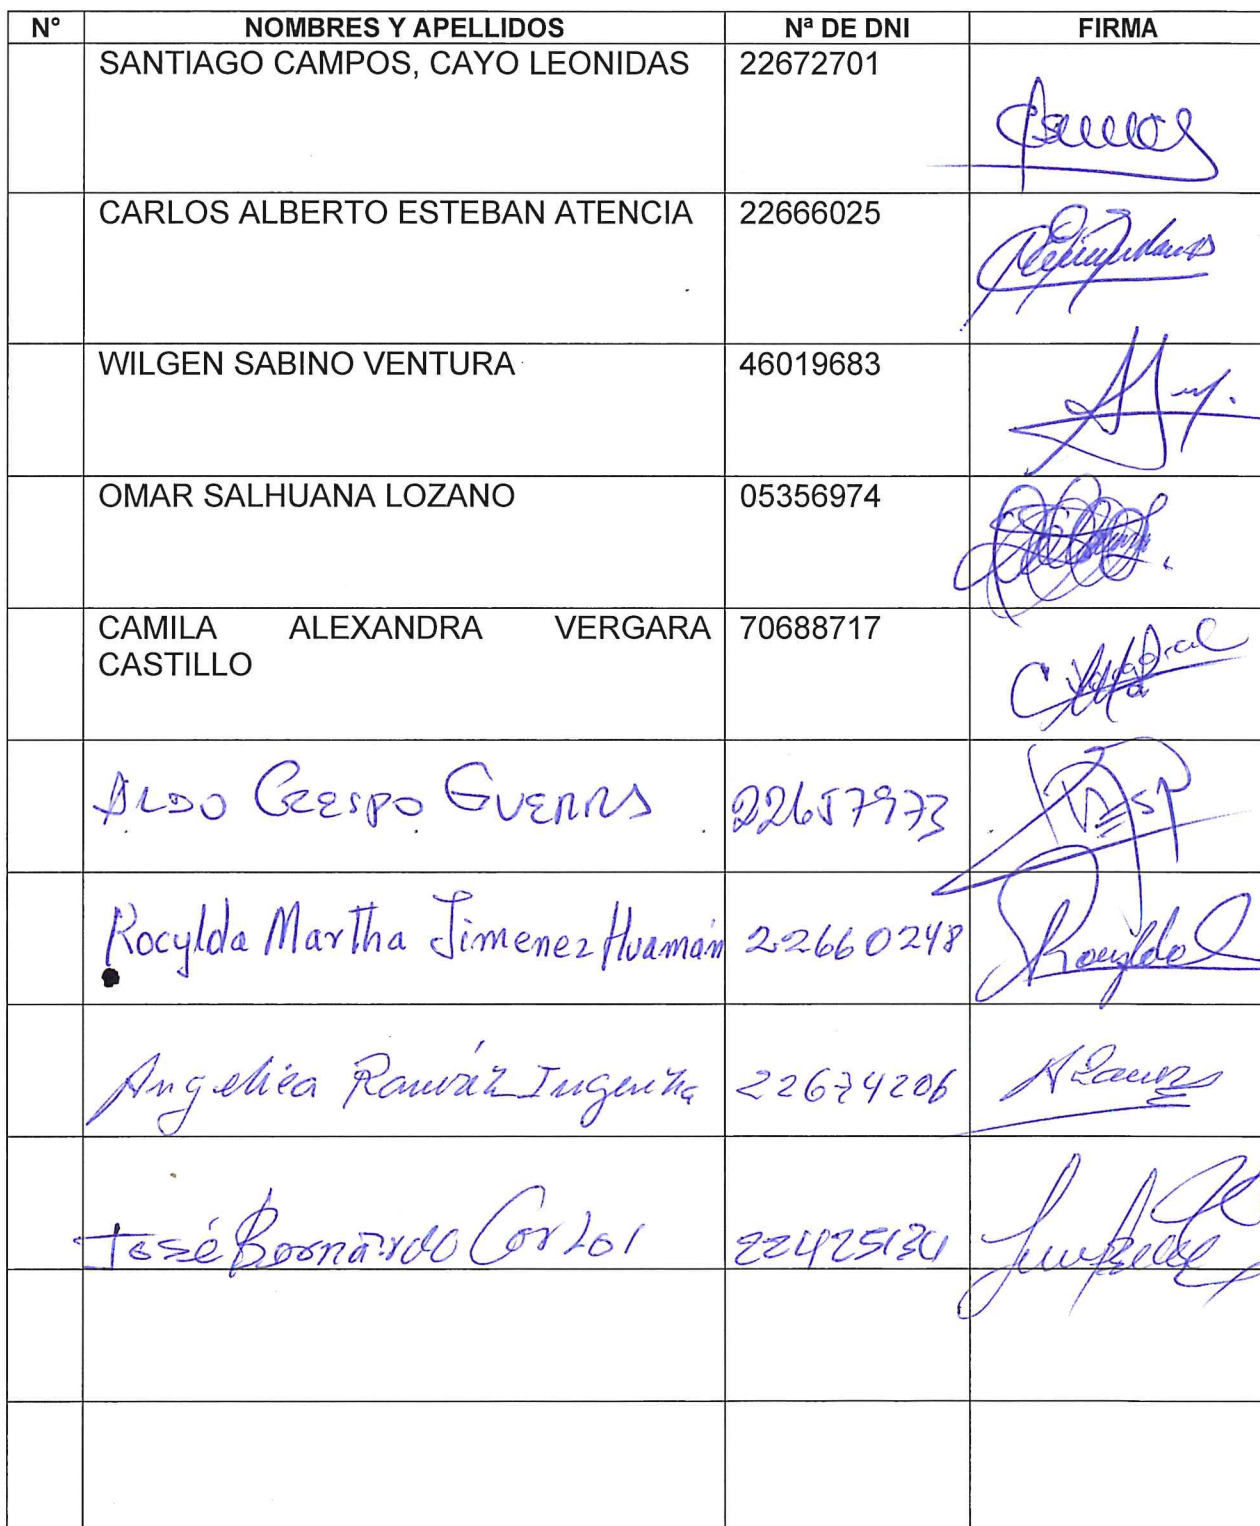 N° NOMBRES Y APELLIDOS Nª DE DNI FIRMA
SANTIAGO CAMPOS, CAYO LEONIDAS 22672701
CARLOS ALBERTO ESTEBAN ATENCIA 22666025
WILGEN SABINO VENTURA 46019683
OMAR SALHUANA LOZANO 05356974
CAMILA ALEXANDRA VERGARA 70688717
CASTILLO
ALDO CRESPO GUERRA 22657973
Rocylda Martha Jimenez Huamán 22660248
Angelica Ramírez 22674206
José Bernardo